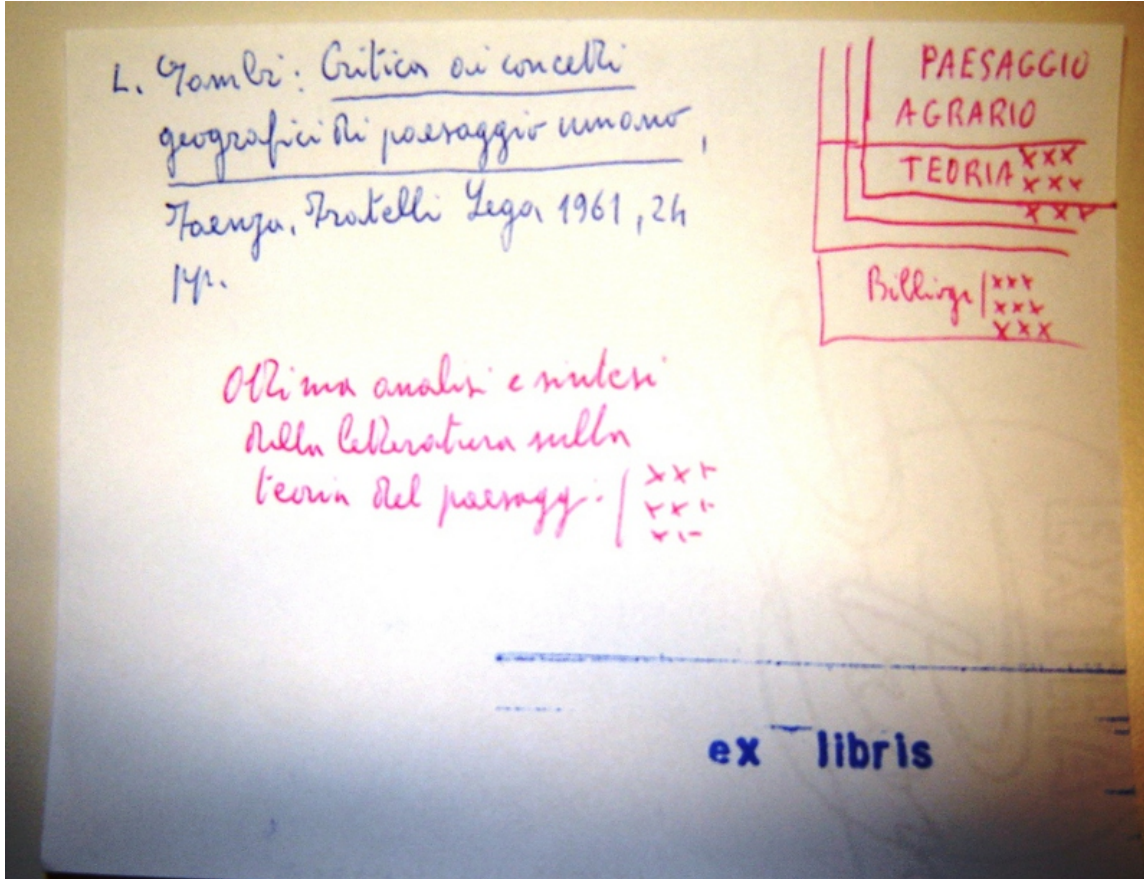 L. Gambi: Critica ai concetti
geografici di paesaggio umano,
Faenza, Fratelli Lega 1961, 24
pp.
PAESAGGIO
AGRARIO
TEORIA xxx
xxx
xxx
Bibliogr xxx
xxx
xxx
Ottima analisi e sintesi
della letteratura sulla
teoria del paesaggi. xxx
xxx
xxx
ex libris